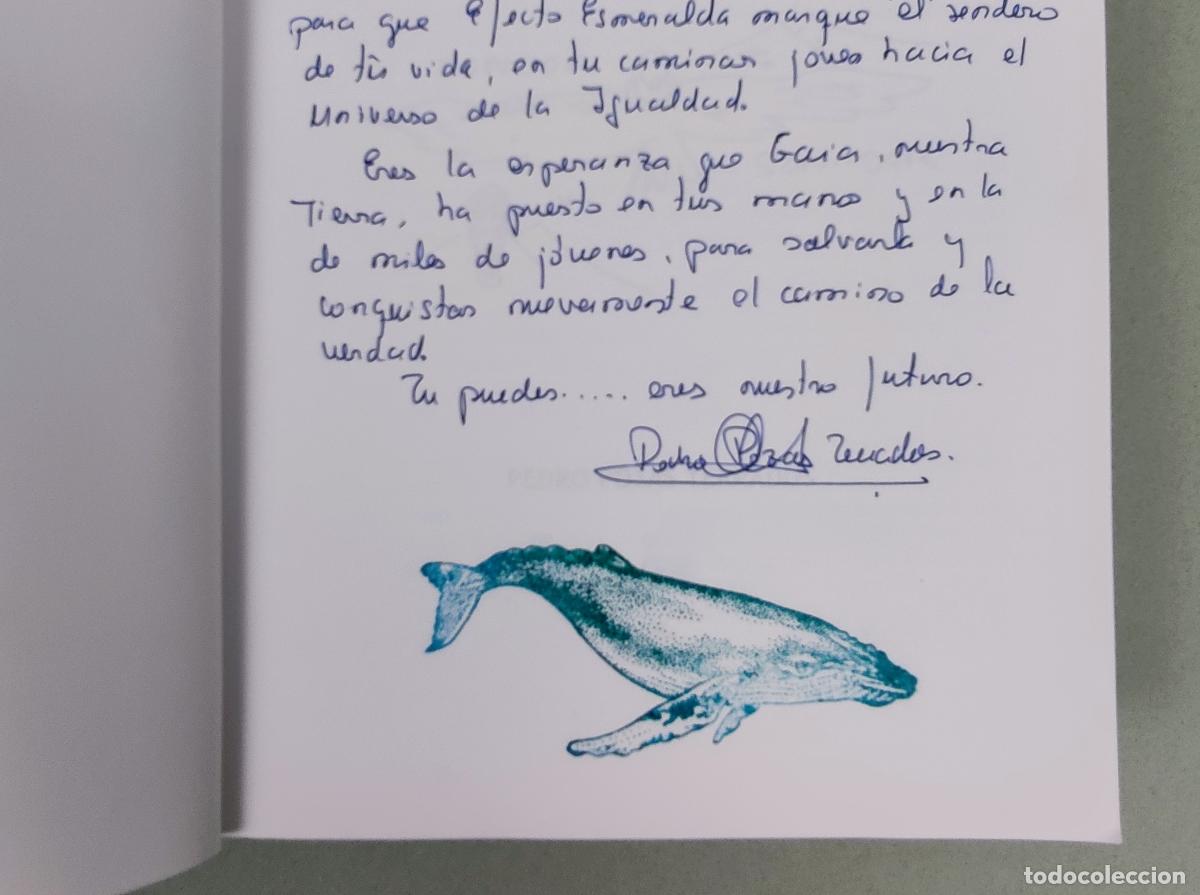 para que Efecto Esmeralda marque el sendero
de tu vida, en tu caminar joven hacia el
Universo de la Igualdad.
Eres la esperanza que Gaia, nuestra
Tierra, ha puesto en tus manos y en la
de miles de jóvenes, para salvarla y
conquistar nuevamente el camino de la
verdad.
Tu puedes..... eres nuestro futuro.
Pedro
PEDRO
todocoleccion